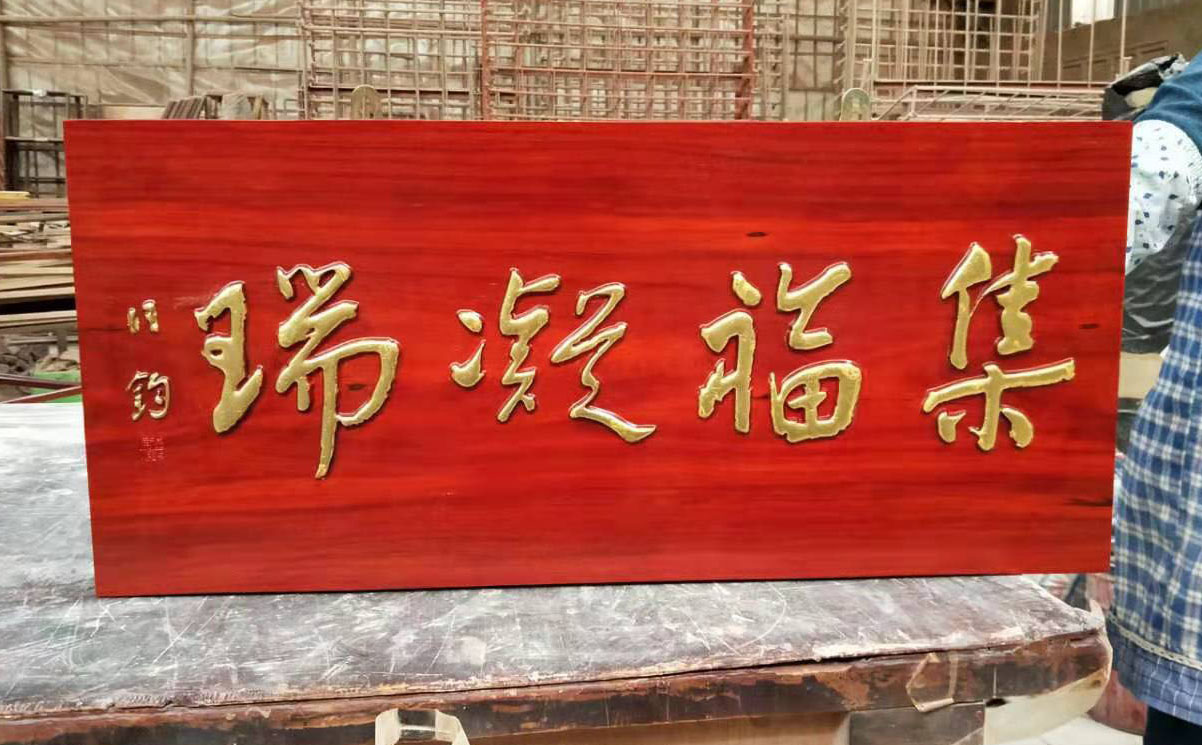 集福凝瑞